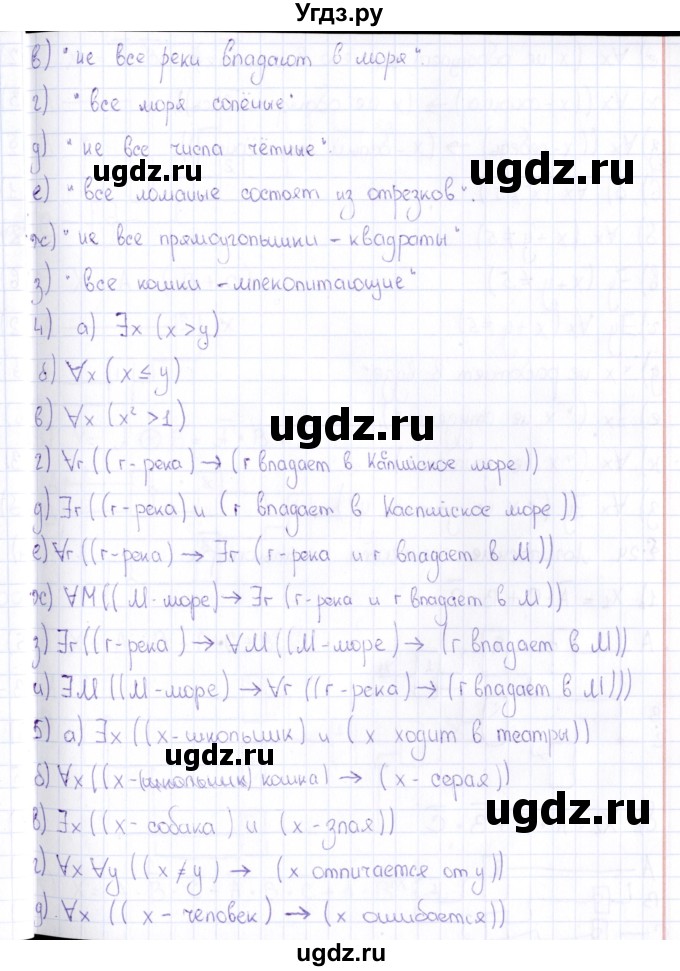 Угдз.ру
в) "не все реки впадают в моря".
г) "все моря солёные"
д) "не все числа чётные".
ugdz.ru
ugdz.ru
е) "все ломаные состоят из отрезков".
ж) "не все прямоугольники - квадраты"
з) "все кошки - млекопитающие"
4) а) ∃x (x > y)
б) ∀x (x ≤ y)
в) ∀x (x² > 1)
ugdz.ru
г) ∀r ((r - река) → (r впадает в Каспийское море))
д) ∃r ((r - река) и (r впадает в Каспийское море))
е) ∀r ((r - река) → ∃r (r - река и r впадает в M))
ж) ∀M ((M - море) → ∃r (r - река и r впадает в M))
з) ∃r ((r - река) → ∀M ((M - море) → (r впадает в M))
и) ∃M ((M - море) → ∀r ((r - река) → (r впадает в M)))
5) а) ∃x ((x - школьник) и (x ходит в театры))
ugdz.ru
б) ∀x ((x - (школьник) кошка) → (x - серая))
ugdz.ru
в) ∃x ((x - собака) и (x - злая))
г) ∀x ∀y ((x ≠ y) → (x отличается от y))
д) ∀x ((x - человек) → (x ошибается))
ugdz.ru